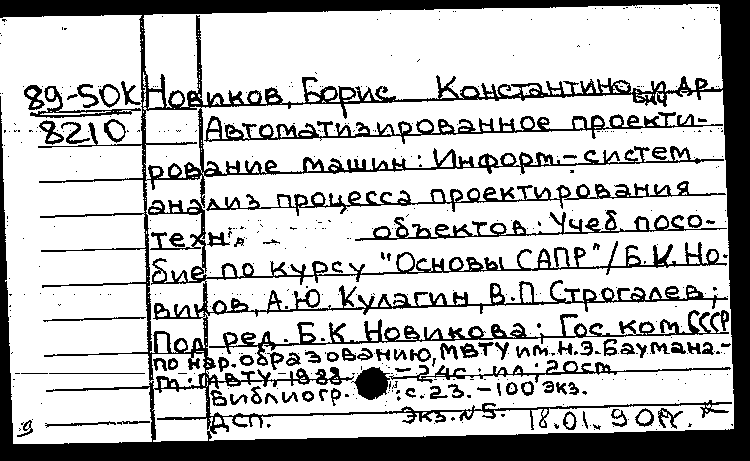 89-50К Новиков, Борис Константинович и др.
8210 Автоматизированное проекти-
рование машин: Информ.-систем.
анализ процесса проектирования
техн. объектов: Учеб. посо-
бие по курсу "Основы САПР"/Б.К. Но-
виков, А.Ю. Кулагин, В.П. Строгалев;
Под ред. Б.К. Новикова; Гос. ком. СССР
по нар. образованию, МВТУ им. Н.Э. Баумана.-
М.: МВТУ, 1988 - 24с.: ил.; 20см.
Библиогр. : с. 23. - 100 экз.
ДСП. Экз. №5. 18.01.90